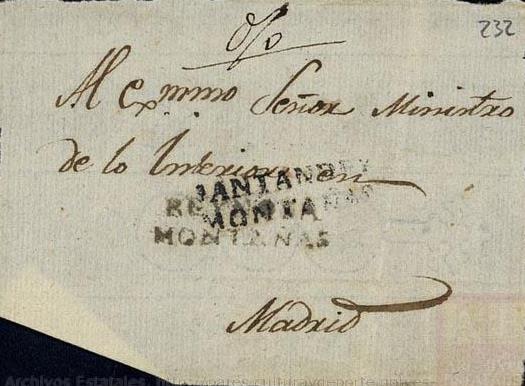 232
%
Al exmmo Señor Ministro
de lo Interior en
SANTANDER Y
MONTAÑAS
REYNOSA
MONTAÑAS
Madrid
Archivos Estatales